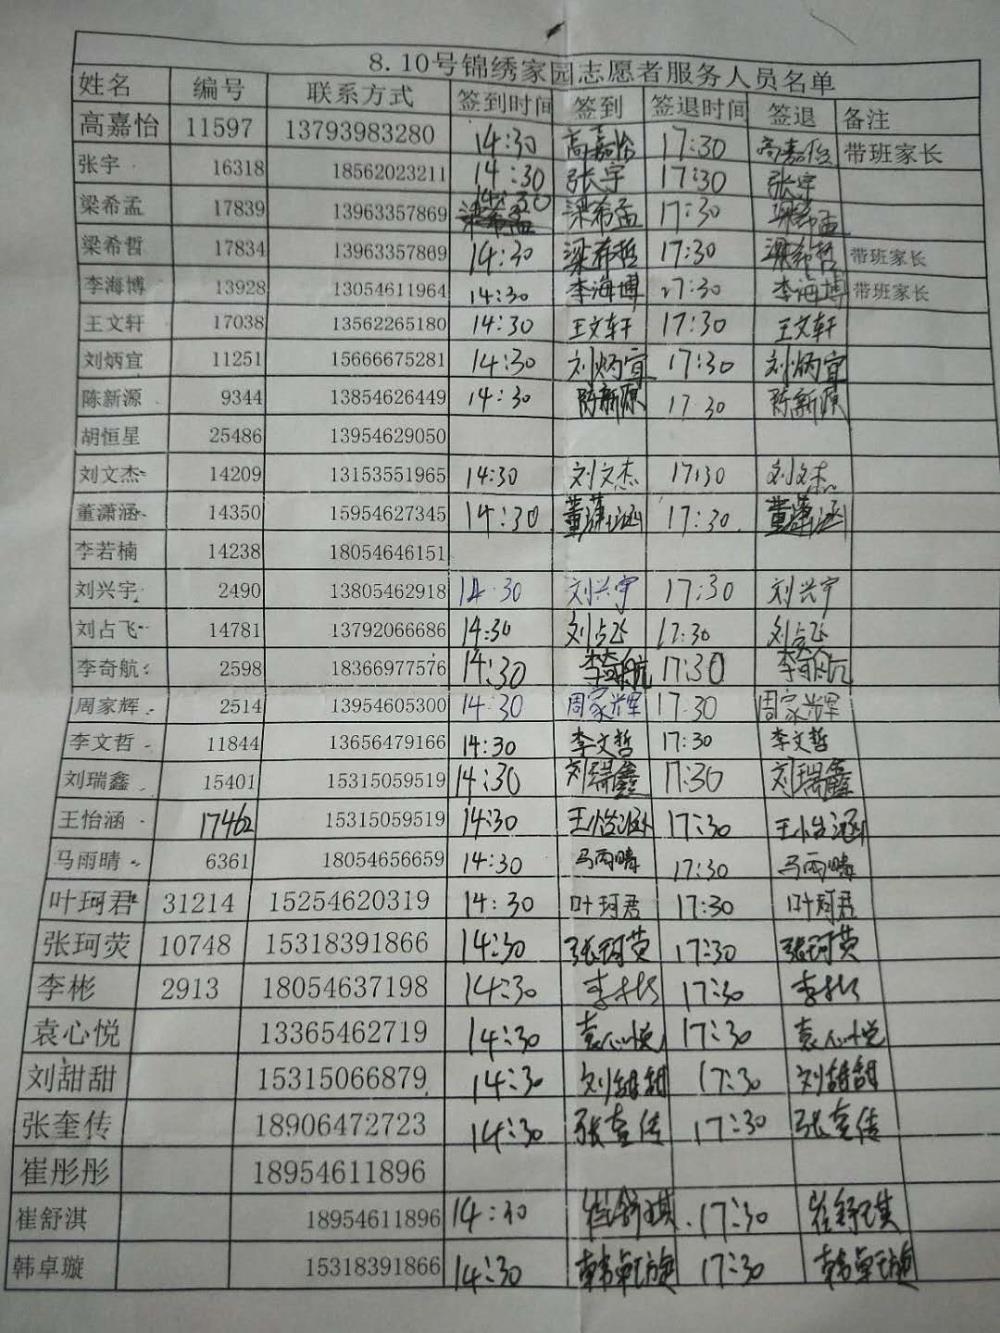 8.10号锦绣家园志愿者服务人员名单
姓名 编号 联系方式 签到时间 签到 签退时间 签退 备注
高嘉怡 11597 13793983280 14:30 高嘉怡 17:30 高嘉怡 带班家长
张宇 16318 18562023211 14:30 张宇 17:30 张宇
梁希孟 17839 13963357869 14:30 梁希孟 17:30 梁希孟
梁希哲 17834 13963357869 14:30 梁希哲 17:30 梁希哲 带班家长
李海博 13928 13054611964 14:30 李海博 17:30 李海博 带班家长
王文轩 17038 13562265180 14:30 王文轩 17:30 王文轩
刘炳宜 11251 15666675281 14:30 刘炳宜 17:30 刘炳宜
陈新源 9344 13854626449 14:30 陈新源 17:30 陈新源
胡恒星 25486 13954629050
刘文杰 14209 13153551965 14:30 刘文杰 17:30 刘文杰
董潇涵 14350 15954627345 14:30 董潇涵 17:30 董潇涵
李若楠 14238 18054646151
刘兴宇 2490 13805462918 14:30 刘兴宇 17:30 刘兴宇
刘占飞 14781 13792066686 14:30 刘占飞 17:30 刘占飞
李奇航 2598 18366977576 14:30 李奇航 17:30 李奇航
周家辉 2514 13954605300 14:30 周家辉 17:30 周家辉
李文哲 11844 13656479166 14:30 李文哲 17:30 李文哲
刘瑞鑫 15401 15315059519 14:30 刘瑞鑫 17:30 刘瑞鑫
王怡涵 17462 15315059519 14:30 王怡涵 17:30 王怡涵
马雨晴 6361 18054656659 14:30 马雨晴 17:30 马雨晴
叶珂君 31214 15254620319 14:30 叶珂君 17:30 叶珂君
张珂荧 10748 15318391866 14:30 张珂荧 17:30 张珂荧
李彬 2913 18054637198 14:30 李彬 17:30 李彬
袁心悦 13365462719 14:30 袁心悦 17:30 袁心悦
刘甜甜 15315066879 14:30 刘甜甜 17:30 刘甜甜
张奎传 18906472723 14:30 张奎传 17:30 张奎传
崔彤彤 18954611896
崔舒淇 18954611896 14:30 崔舒琪 17:30 崔舒琪
韩卓璇 15318391866 14:30 韩卓璇 17:30 韩卓璇